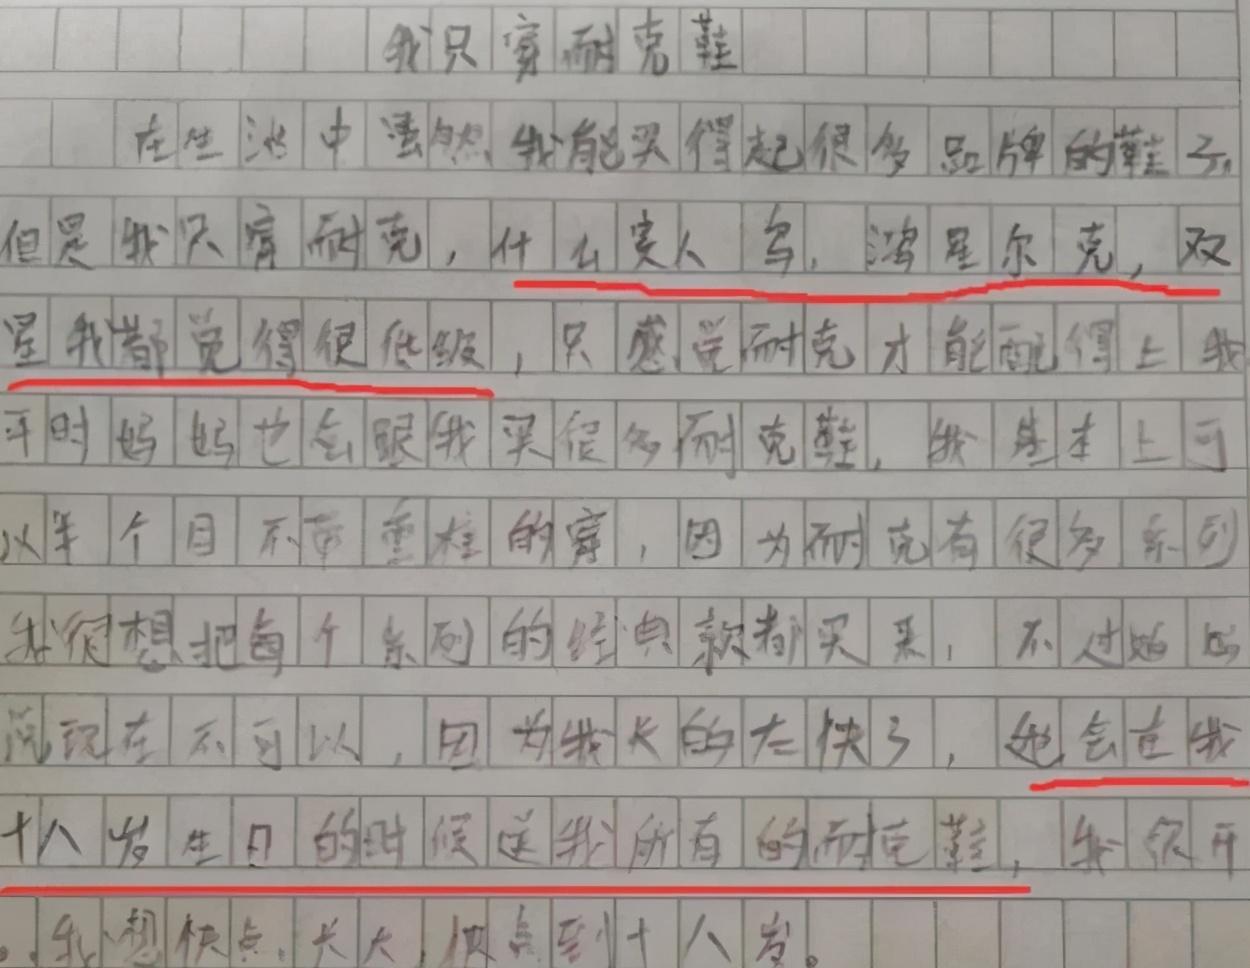 我只穿耐克鞋
在生活中虽然我能买得起很多品牌的鞋子,
但是我只穿耐克,什么贵人鸟,鸿星尔克,双
星我都觉得很低级,只感觉耐克才能配得上我
平时妈妈也会跟我买很多耐克鞋,我基本上可
以半个月不带重样的穿,因为耐克有很多系列
我很想把每个系列的经典款都买来,不过妈妈
说现在不可以,因为我长的太快了,她会在我
十八岁生日的时候送我所有的耐克鞋,我很开
。我想快点长大,快点到十八岁。